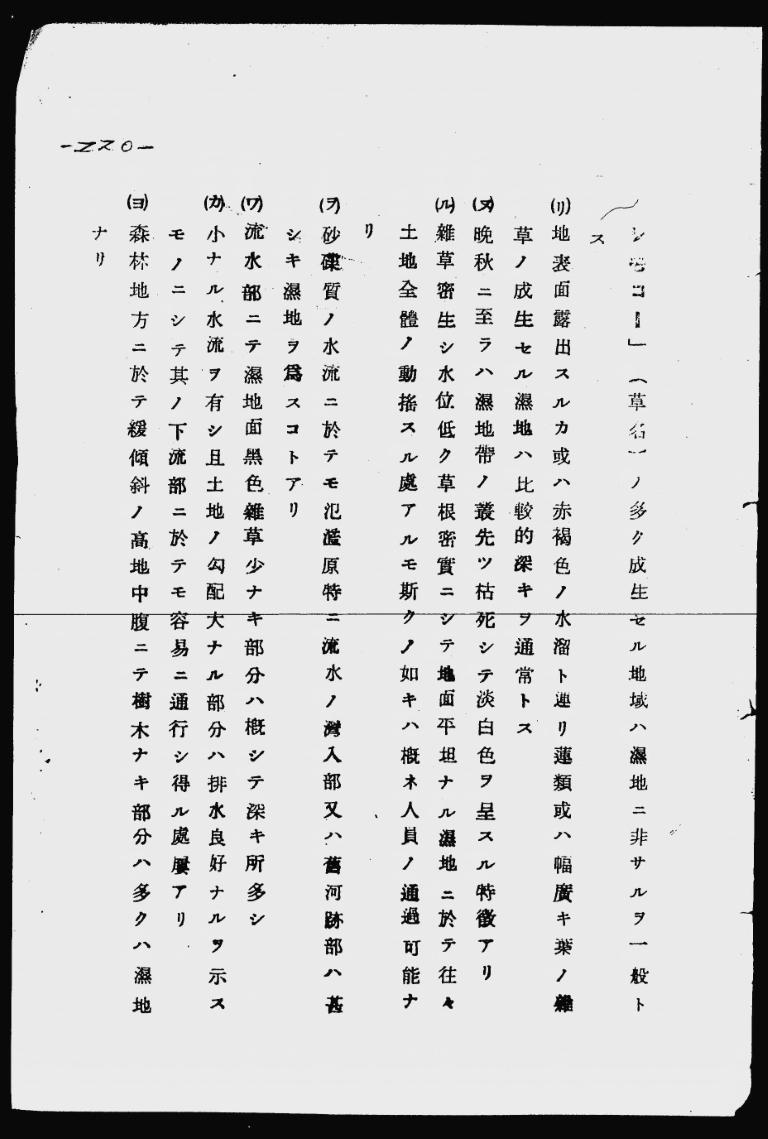 -220-
シモコー」(草名)ノ多ク成生セル地域ハ濕地ニ非サルヲ一般ト
ス
(リ)地表面露出スルカ或ハ赤褐色ノ水溜ト連リ蓮類或ハ幅廣キ葉ノ雜
草ノ成生セル濕地ハ比較的深キヲ通常トス
(ヌ)晩秋ニ至ラハ濕地帶ノ叢先ツ枯死シテ淡白色ヲ呈スル特徵アリ
(ル)雜草密生シ水位低ク草根密實ニシテ地面平坦ナル濕地ニ於テ往々
土地全體ノ動搖スル處アルモ斯クノ如キハ槪ネ人員ノ通過可能ナ
リ
(ヲ)砂礫質ノ水流ニ於テモ氾濫原特ニ流水ノ灣入部又ハ舊河跡部ハ甚
シキ濕地ヲ爲スコトアリ
(ワ)流水部ニテ濕地面黑色雜草少ナキ部分ハ槪シテ深キ所多シ
(カ)小ナル水流ヲ有シ且土地ノ勾配大ナル部分ハ排水良好ナルヲ示ス
モノニシテ其ノ下流部ニ於テモ容易ニ通行シ得ル處屢アリ
(ヨ)森林地方ニ於テ緩傾斜ノ高地中腹ニテ樹木ナキ部分ハ多クハ濕地
ナリ